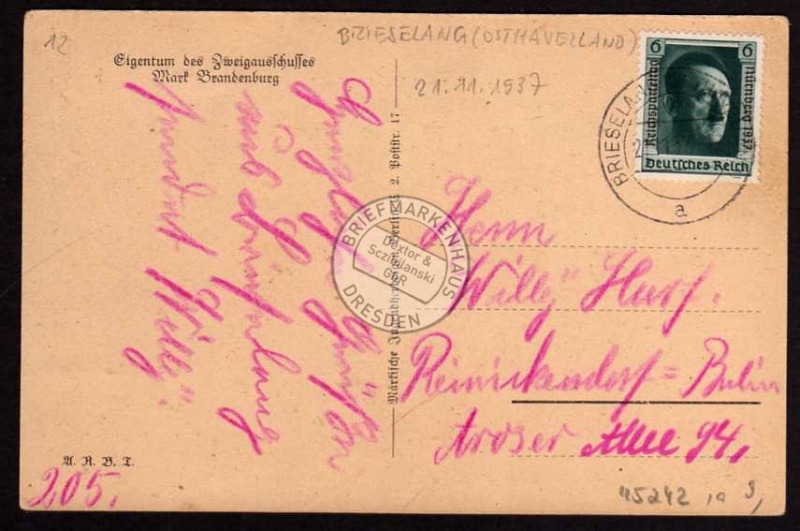 12
Eigentum des Zweigausschusses
Mark Brandenburg
BRIESELANG (OSTHAVELLAND)
21.11.1937
6 6
Reichsparteitag
Nürnberg 1937
Deutsches Reich
BRIESELANG
a
Herzliche Grüße
aus Brieselang
sendet Willy.
Märkische Jugendherbergen, Berlin C 2, Poststr. 17
BRIEFMARKENHAUS
Dextor &
GbR
DRESDEN
Herrn
"Willy" Harf.
Reinickendorf=Berlin
Aroser Allee 94,
A. R. B. T.
205.